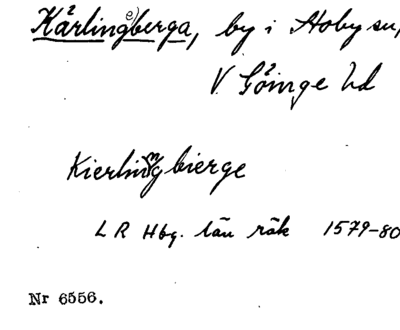 Kärling(e)berga, by i Hoby sn,
V. Göinge hd
Kierlingbierge
LR Hbg. län räk 1579-80
Nr 6556.